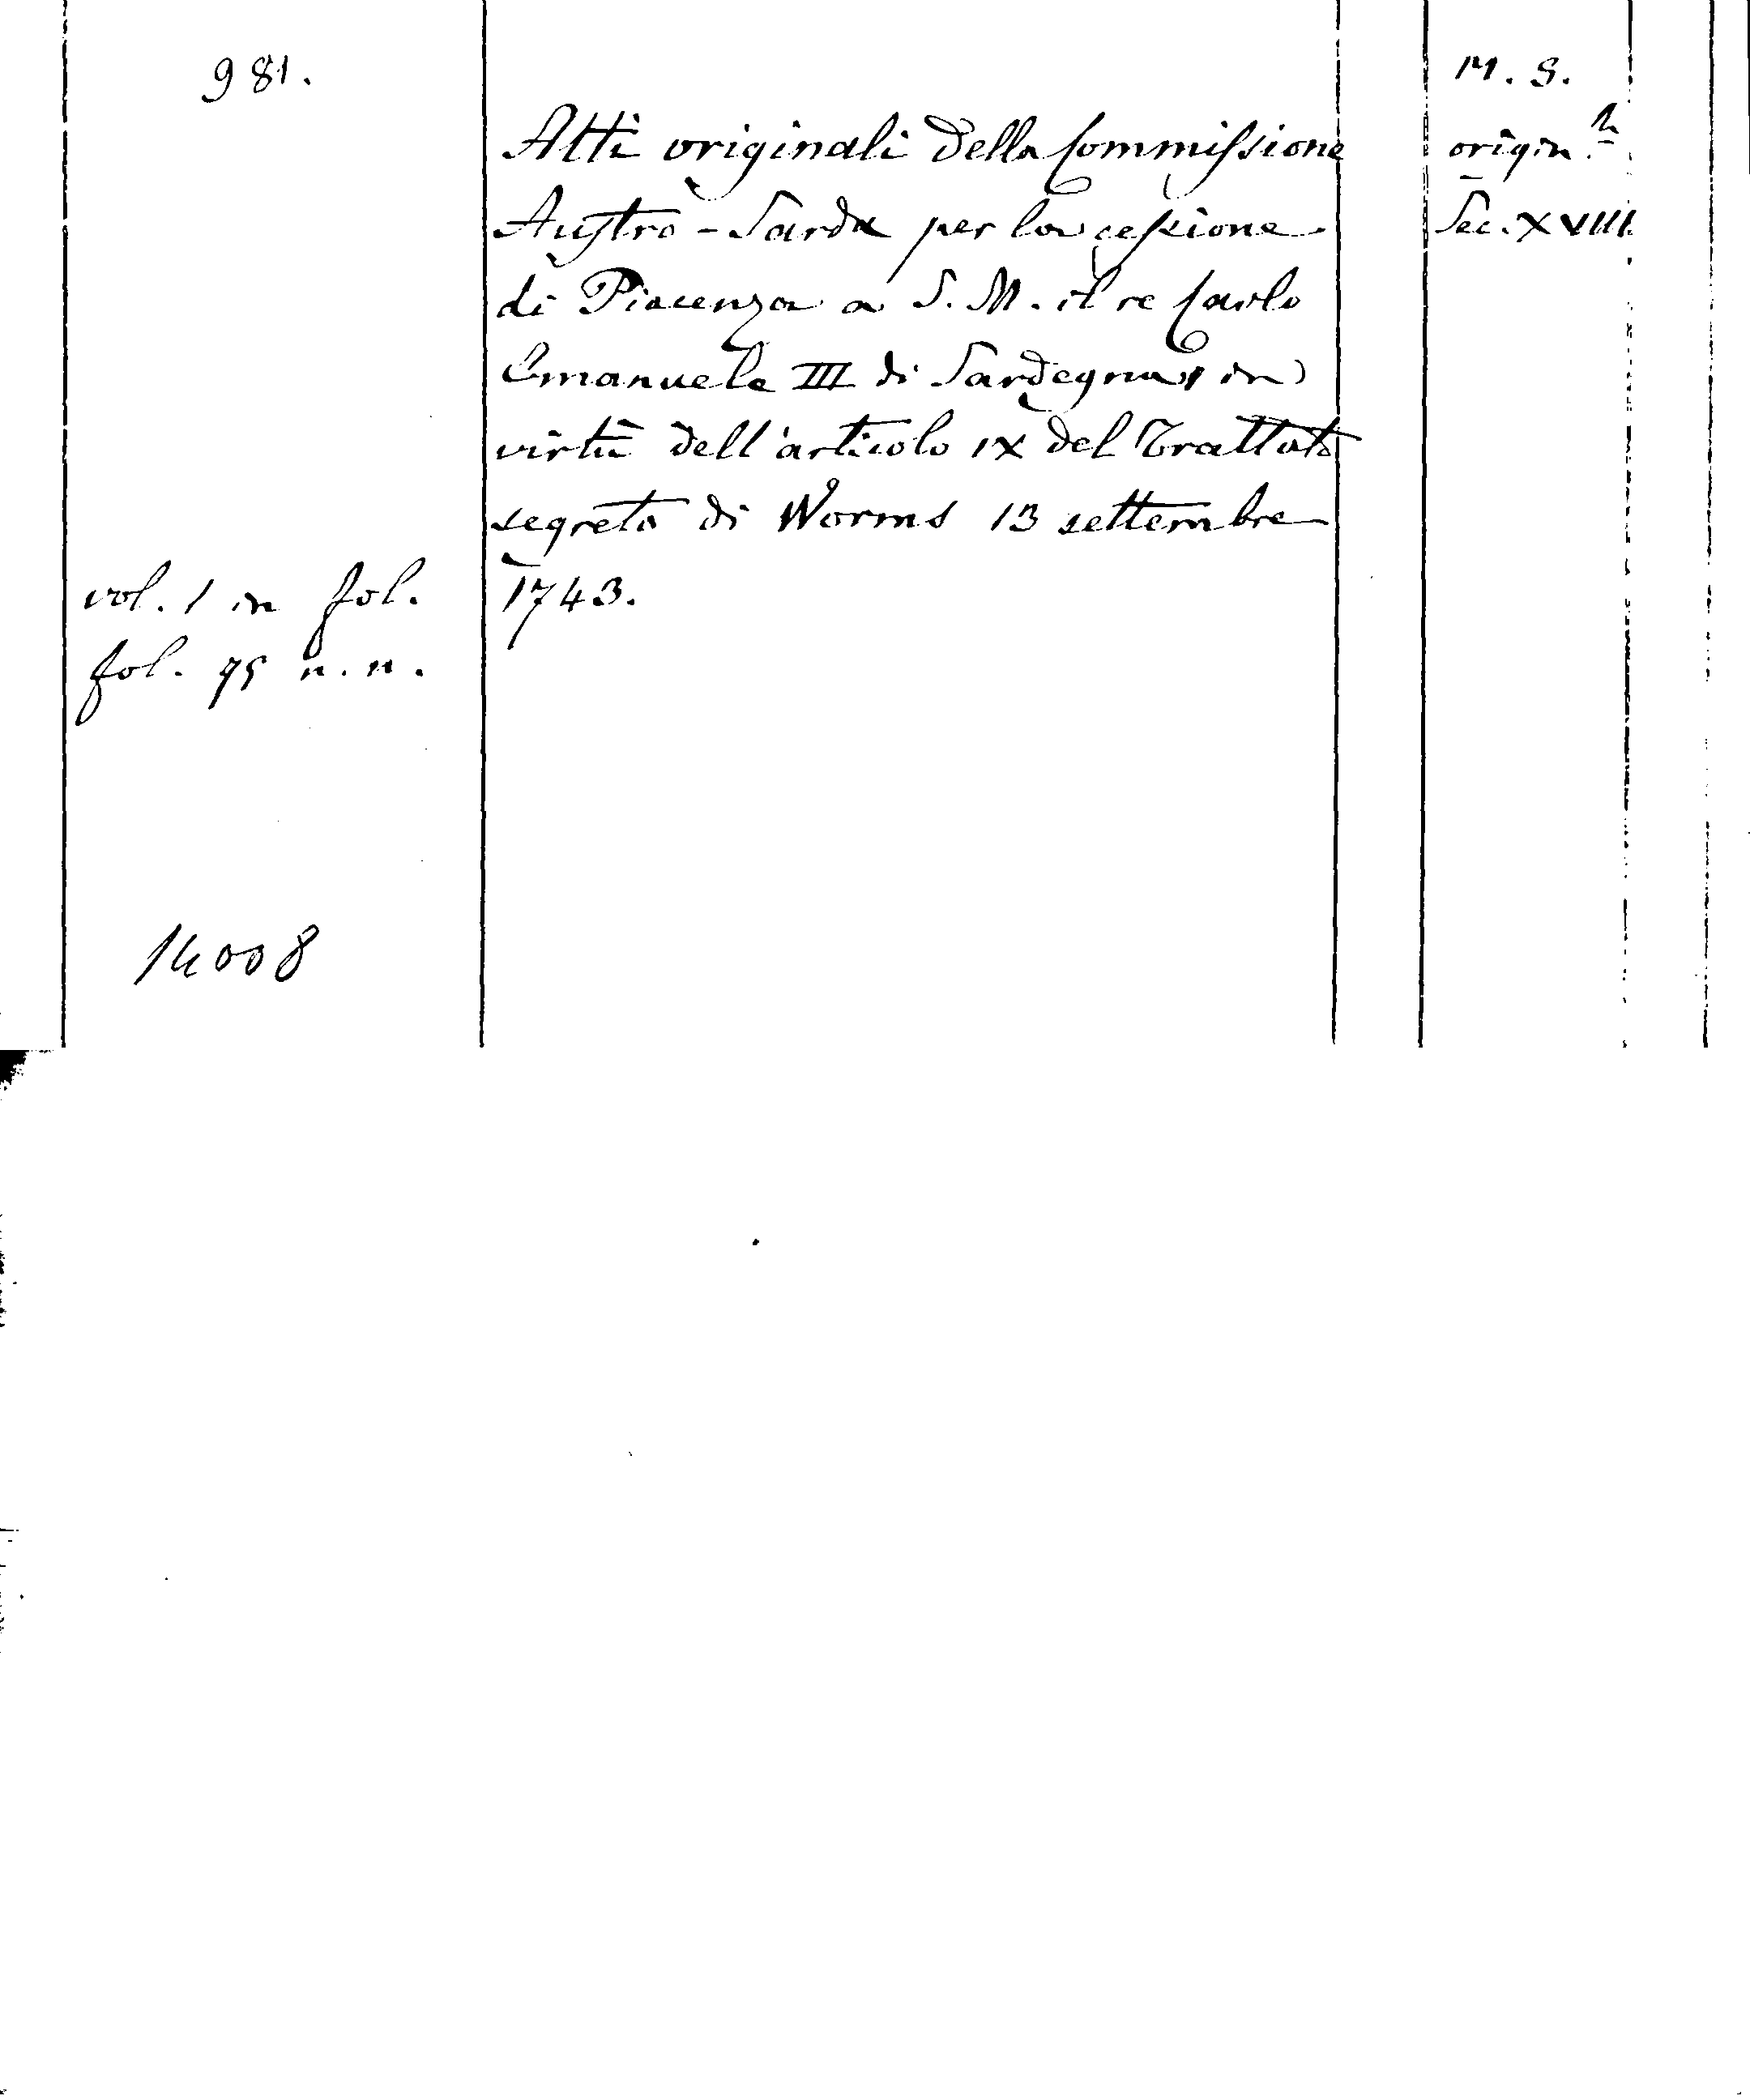 981.
M. S.
Atti originali della Commissione
origin.
Austro-Sarda per la cessione
Sec. XVIII
di Piacenza a S. M. il re Carlo
Emanuele III di Sardegna, in
virtù dell'articolo IX del Trattato
segreto di Worms 13 settembre
vol. 1 in fol.
1743.
fol. 75 n. n.
14008